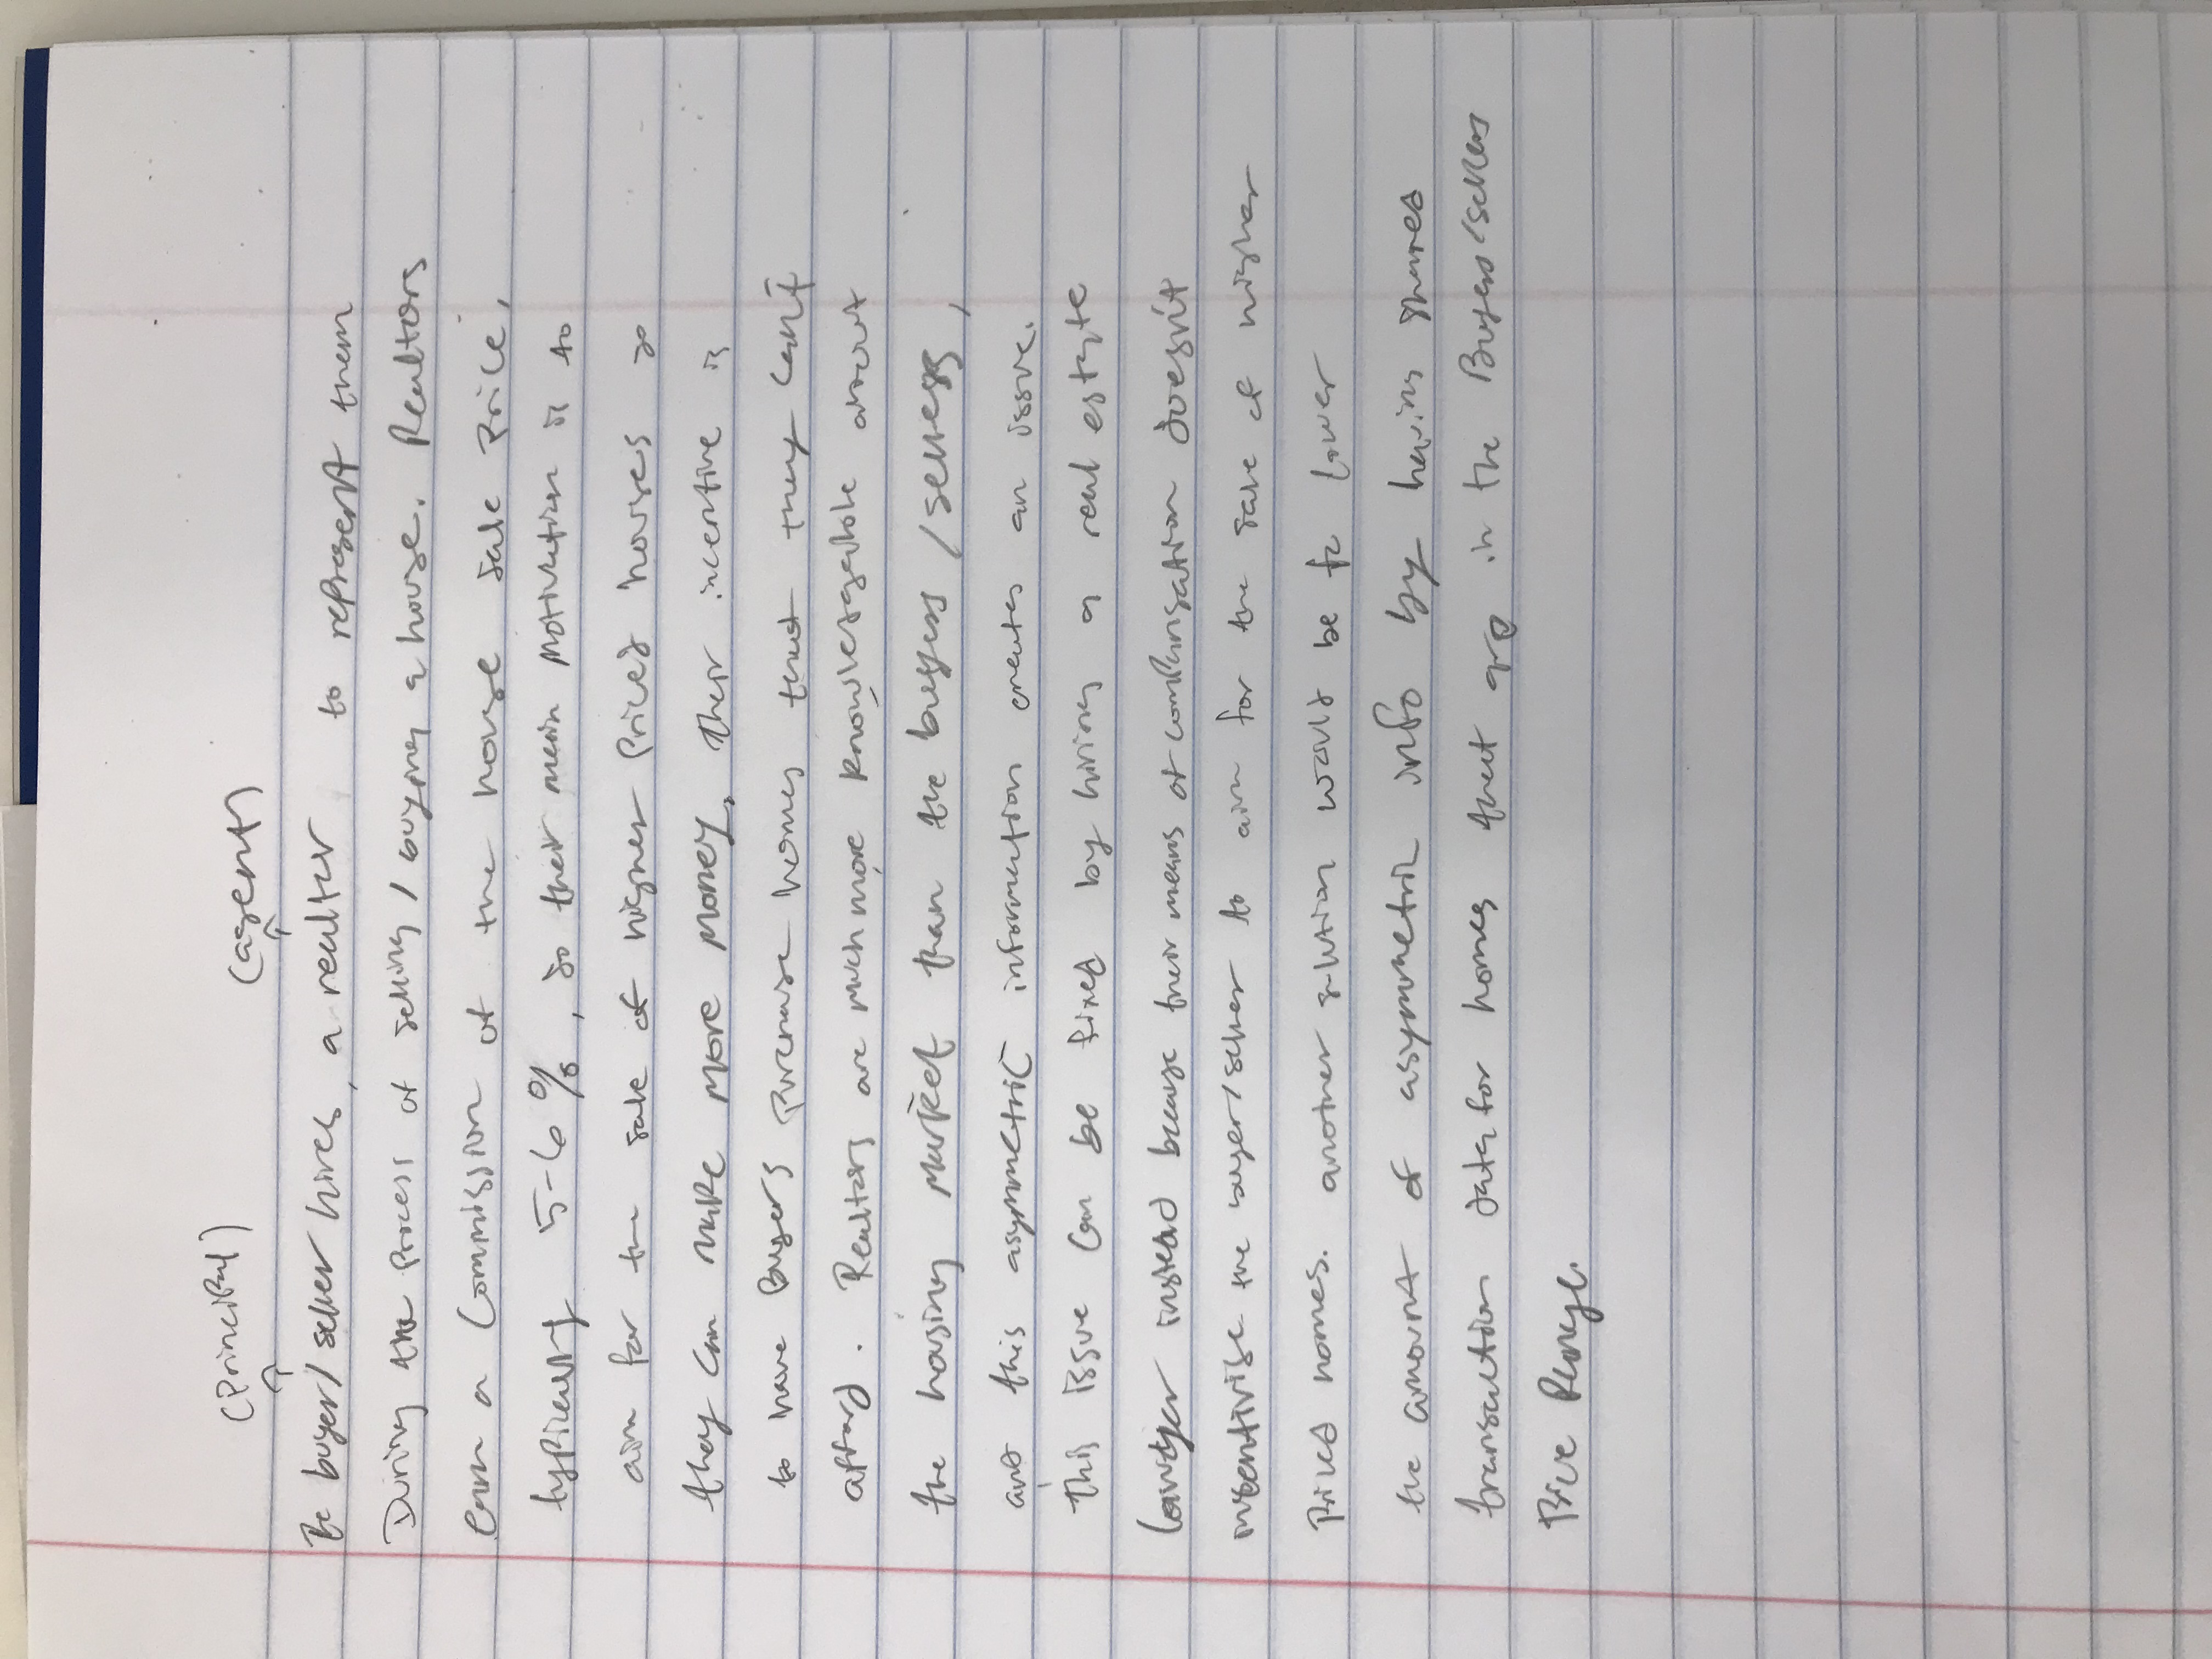 (Principal) (agent)
The buyer/seller hires, a realtor to represent them
During the Process of selling/buying a house. Realtors
earn a Commission of the house sale Price,
typically 5-6%, so their main motivation is to
aim for the sale of higher Priced houses so
they can make more money. Their incentive is
to have Buyers purchase homes that they can't
afford. Realtors are much more knowledgable about
the housing market than the buyers/sellers,
and this asymmetric information creates an issue.
This issue can be fixed by hiring a real estate
lawyer instead because their means of compensation doesn't
incentivise the buyer/seller to aim for the sale of higher
Priced homes. another solution would be to lower
the amount of asymmetric info by having shared
transaction data for homes that are in the Buyers/sellers
Price Range.